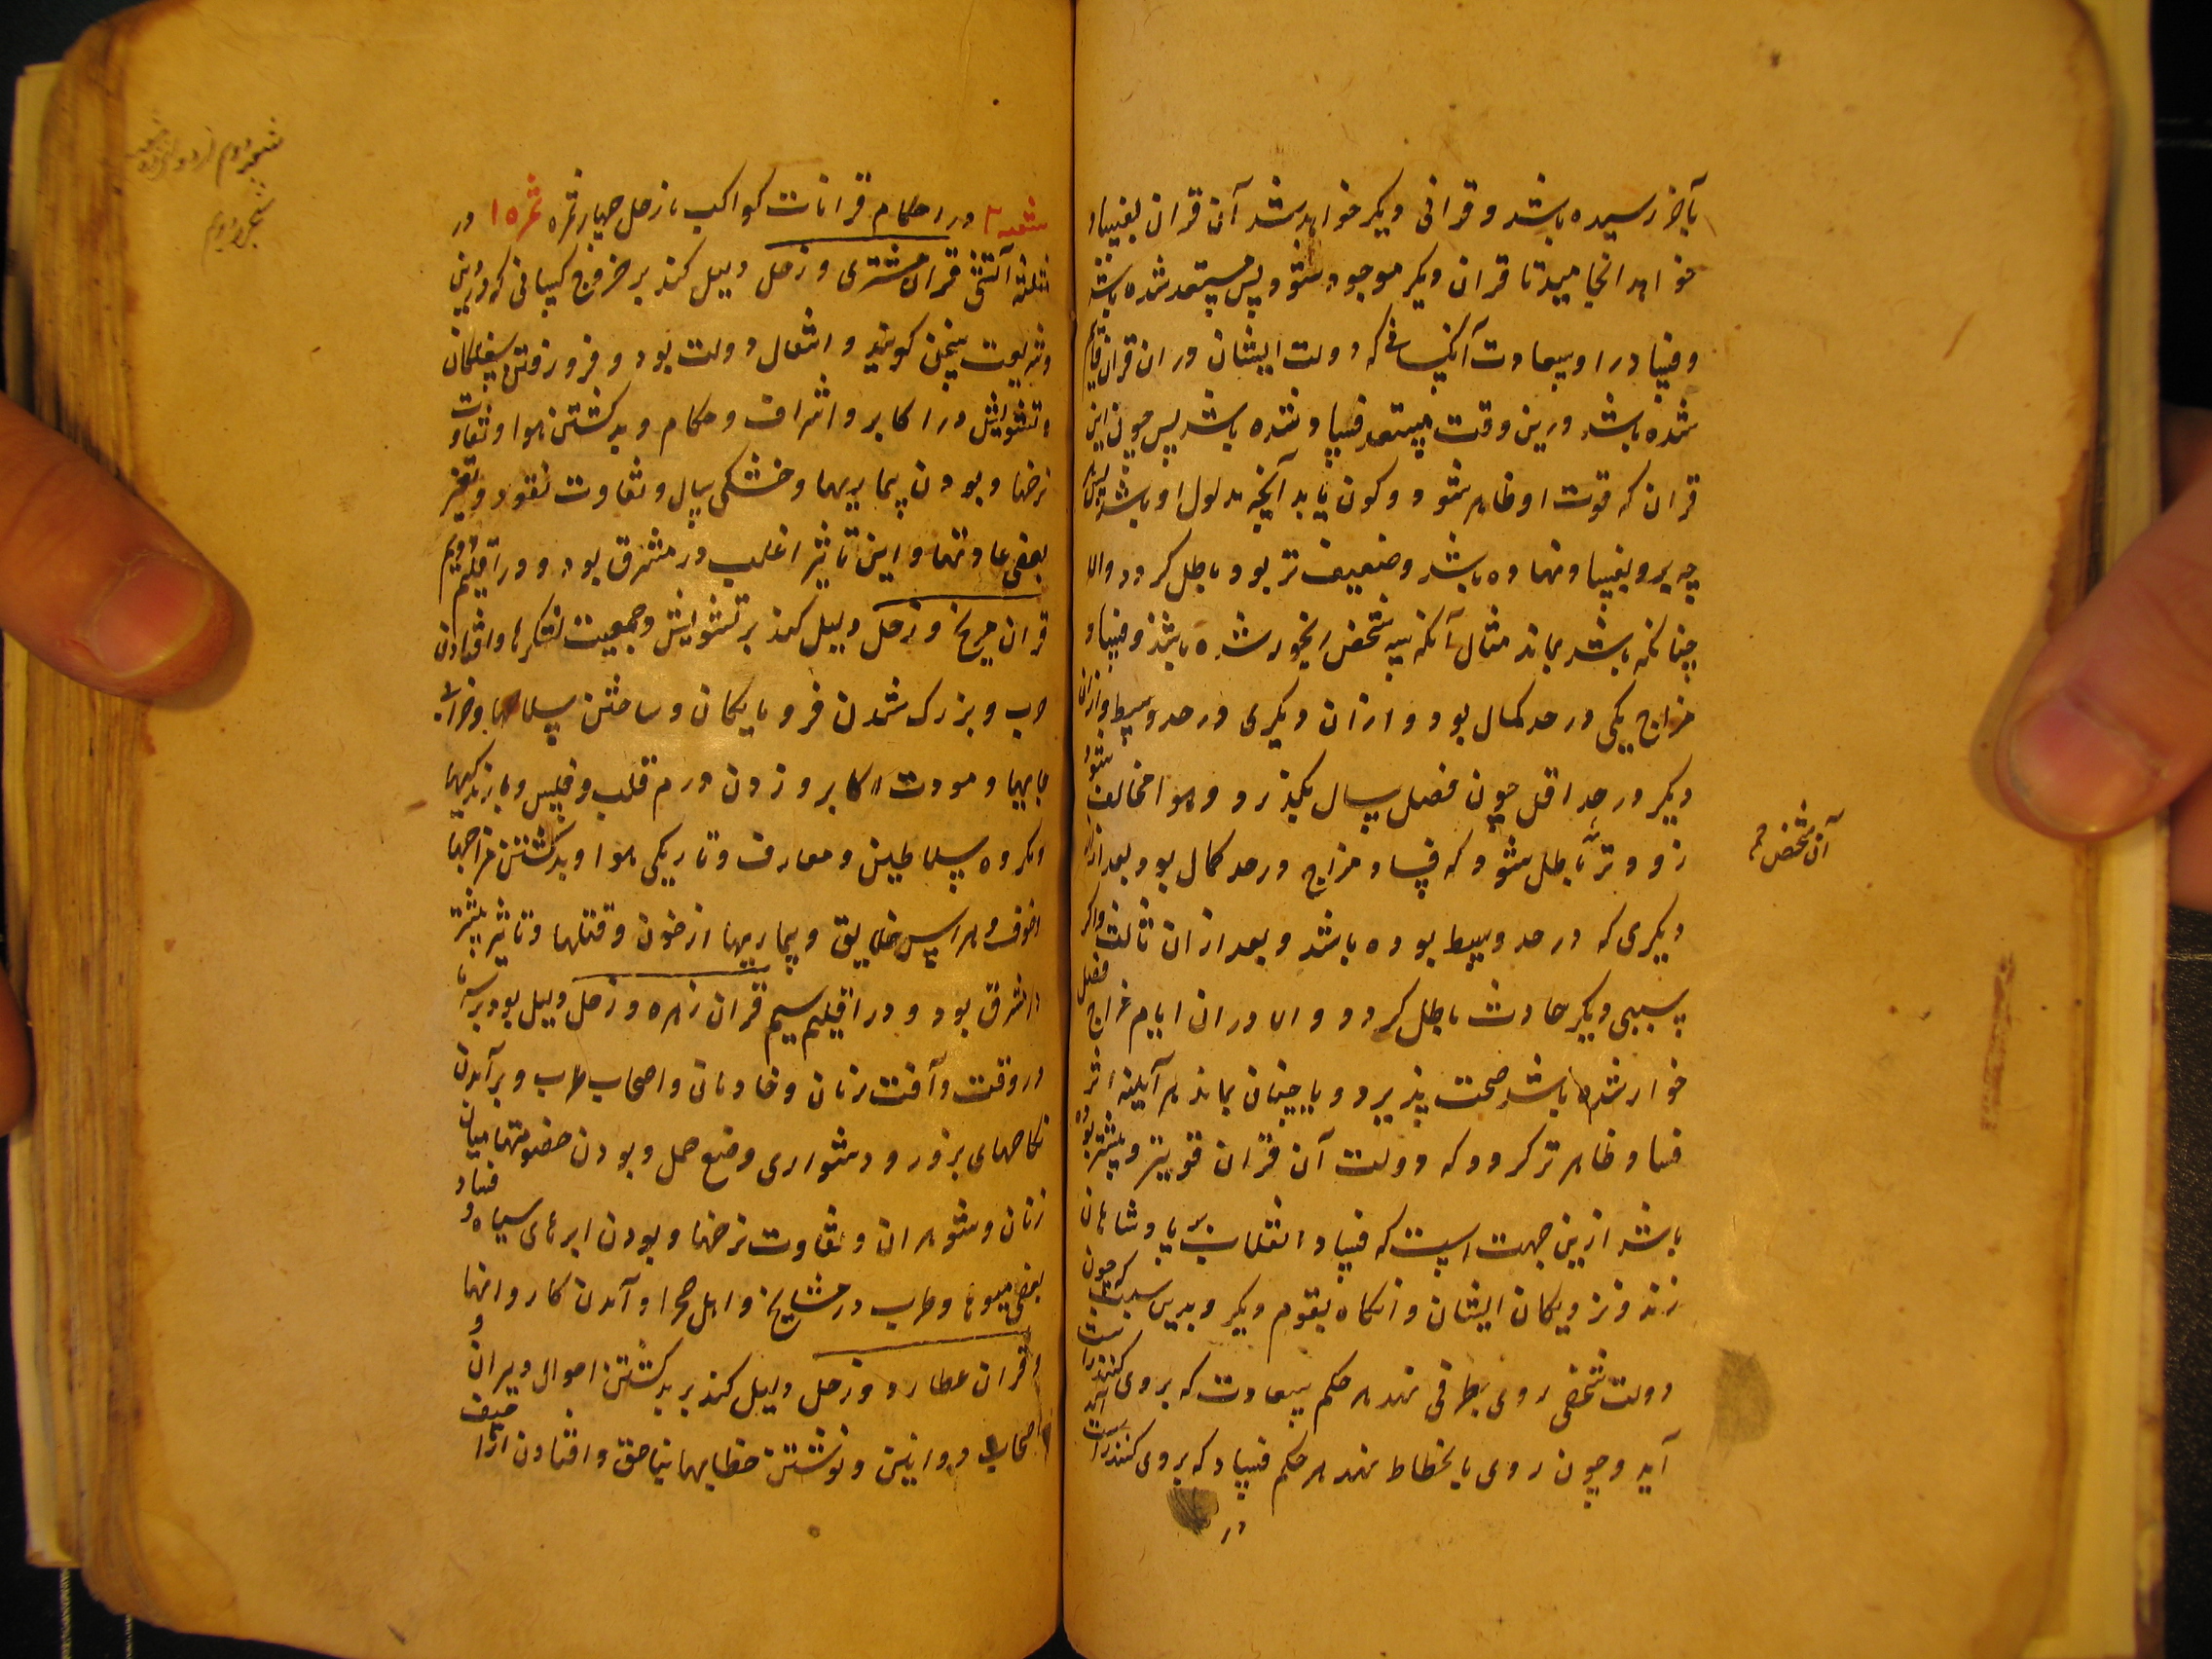 بآخر رسیده باشد و قرانی دیکر خواهد شد آن قران بفساد
خواهد انجامید تا قران دیکر موجود شود پس مستعد شده باشد
و فساد را و سعادت آنکسانی که دولت ایشان در ان قران قایم
شده باشد درین وقت مستعد فساد شده باشد پس چون این
قران که قوت او ظاهر شود و کون یابد آنچه مدلول او باشد
چه برو بفساد نهاده باشد و ضعیف تر بود باطل کردد والا
چنانکه باشد بماند مثال آنکه سه شخص رنجور شده باشند و فساد
مزاج یکی در حد کمال بود و ازان دیکری در حد وسط و ازان
دیکر در حد اقل چون فصل سال بکذرد و هوا مخالف شود
زودتر باطل شود که فساد مزاج در حد کمال بود بعد ازان
آن شخص
دیکری که در حد وسط بوده باشد و بعد ازان ثالث و اکر
بسببی دیکر حادث باطل کردد و الا دران ایام مزاج فصل
خوار شده باشد صحت پذیرد و یا چنان بماند هر آینه اثر
فساد ظاهر تر کردد که دولت آن قران قویتر و بیشتر بوده
باشد ازین جهت است که فساد انقلاب بپادشاهان
زند و نزدیکان ایشان و انکاه بقوم دیکر و بدین سبب است که چون
دولت شخصی روی بطرفی نهد هر حکم بسعادت که بروی کنند راست
آید و چون روی بانحطاط نهد هر حکم فساد که بروی کنند راست
در
شعبه در احکام قرانات کواکب با زحل چهار ثمره ثمره ۱ در
مثلثه آتشی قران مشتری و زحل دلیل کند بر خروج کسانی که در دین
و شریعت سخن کویند و انتقال دولت بود و فرو رفتن سفلکان
و تشویش در اکابر و اشراف و حکام و بد کشتن هوا و تفاوت
نرخها و بودن بیماریها و خشکی سال و تفاوت نقود و تغیر
بعضی عادتها و این تاثیر اغلب در مشرق بود و در اقلیم دویم
قران مریخ و زحل دلیل کند بر تشویش و جمعیت لشکرها و افتادن
حرب و بزرک شدن فرومایکان و ساختن سلاحها و خرابی
جایها و موت اکابر و زدن درم قلب و فلس و بازندکیها
وکروه سلاطین و معارف و تاریکی هوا و بد کشتن مزاجها
و خوف و هراس خلایق و بیماریها از خون و قتلها و تاثیر بیشتر
در مشرق بود و در اقلیم سیم قران زهره و زحل دلیل بود بر
و آفت زنان و خادمان و اصحاب طرب و بر آمدن
نکاحهای بزور و دشواری وضع حمل و بودن خصومتها میان
زنان و شوهران و تفاوت نرخها و بودن ابرهای سیاه و فساد
بعضی میوها و طرب در مشایخ و اهل صحرا و آمدن کاروانها
و قران عطارد و زحل دلیل کند بر بد کشتن احوال دبیران و
اصحاب دواوین و نوشتن خطابها بناحق و افتادن